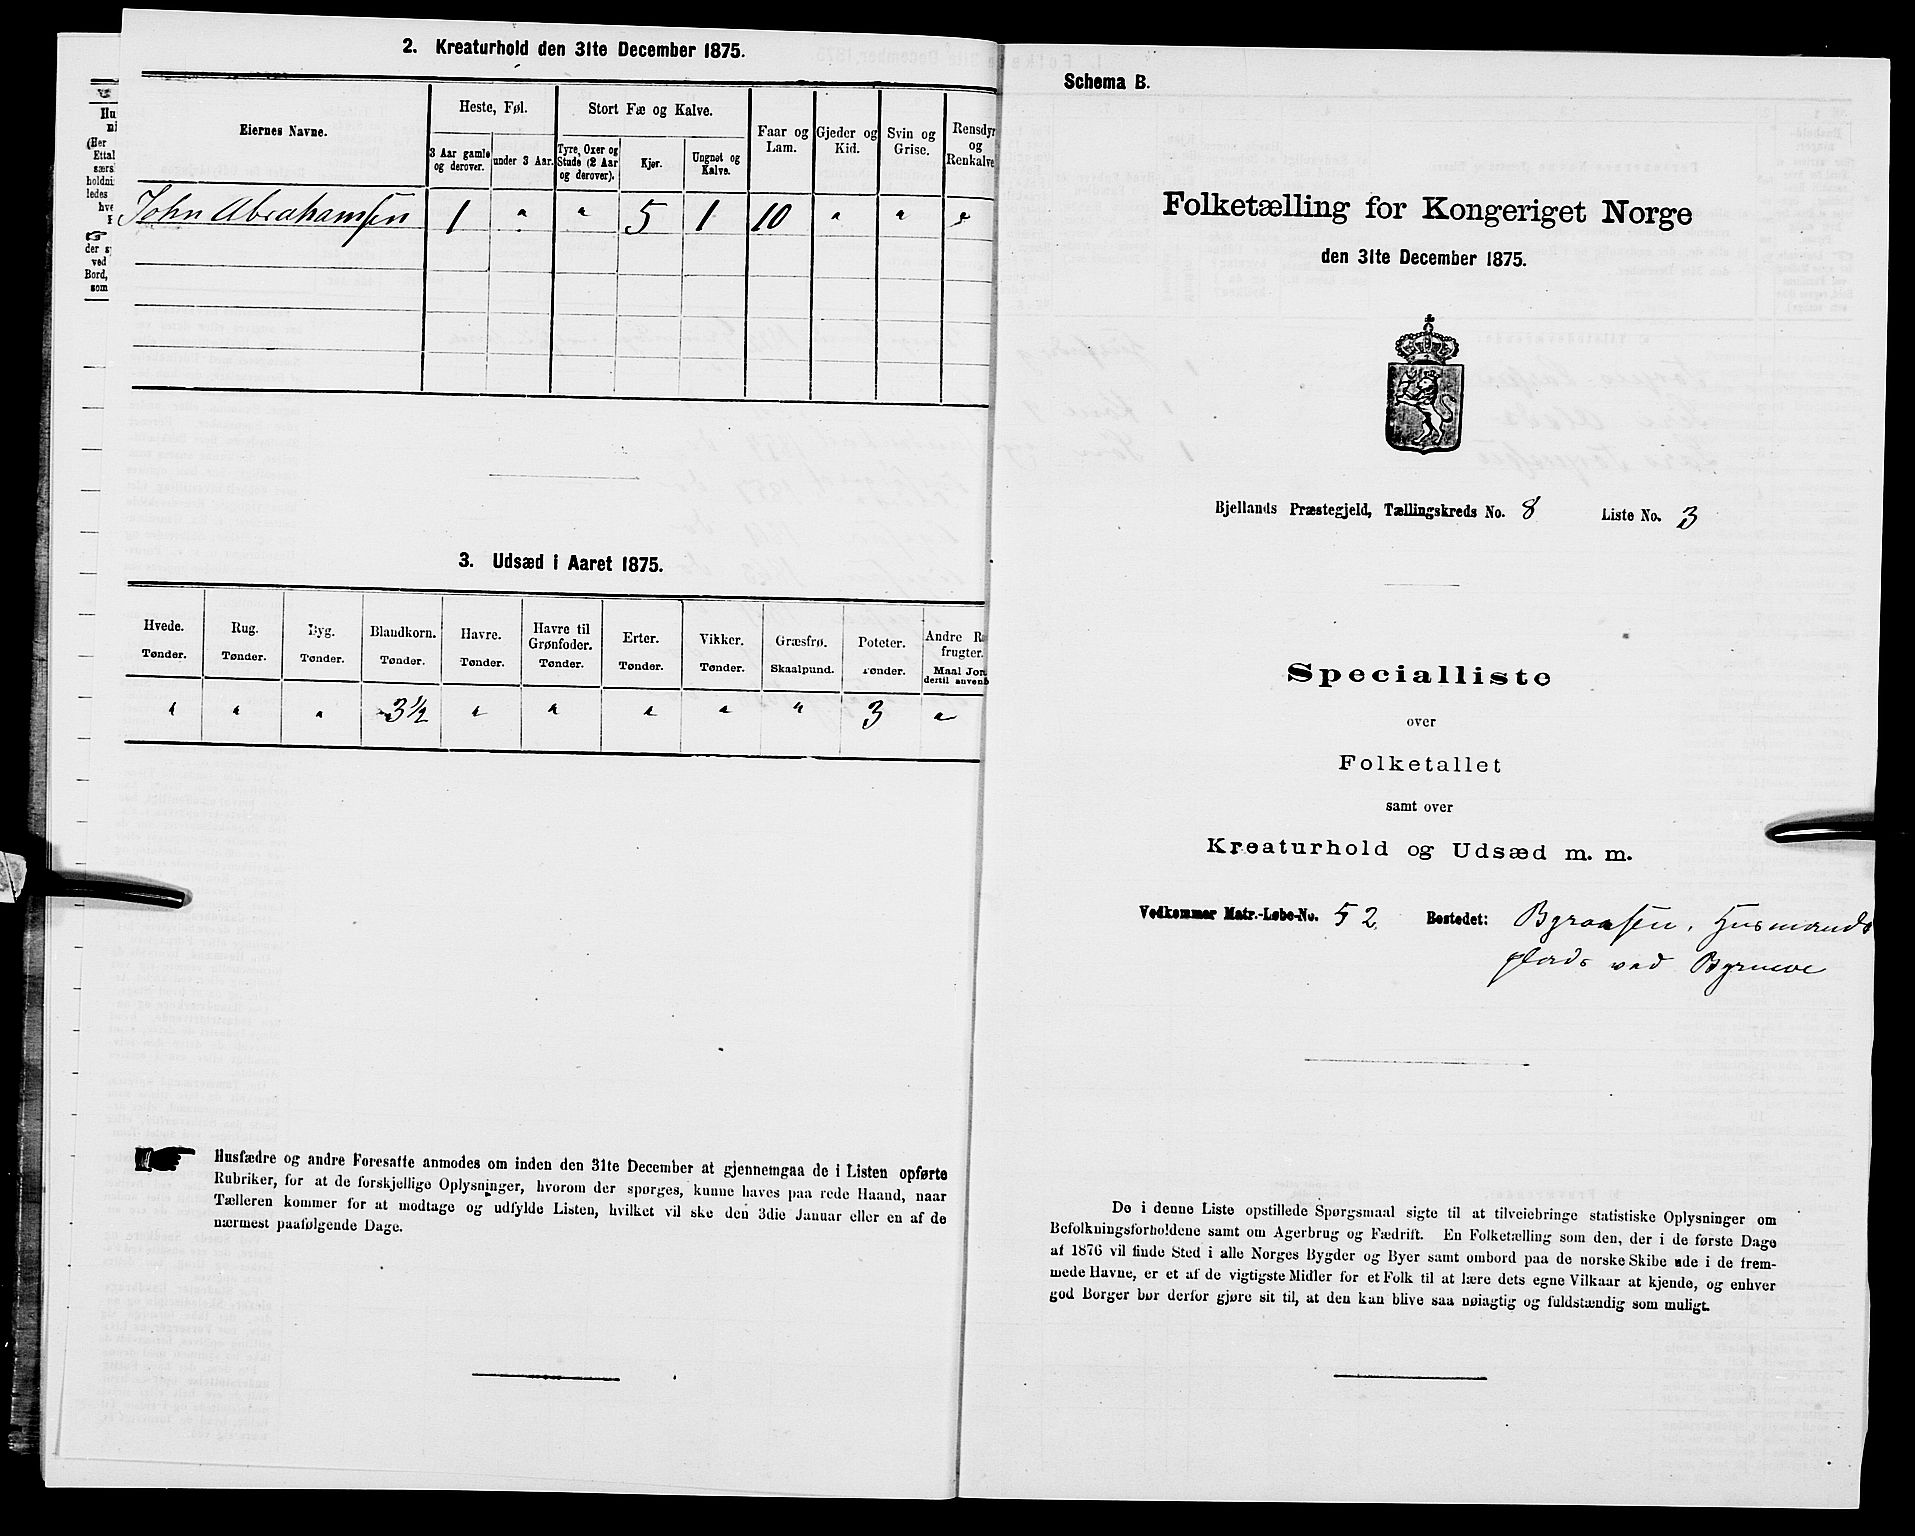 2. Kreaturhold den 31te December 1875.
Eiernes Navne.
Heste, Føl.
Stort Fæ og Kalve.
Faar og Lam.
Gjeder og Kid.
Svin og Grise.
Rensdyr og Renkalve
3 Aar gamle og derover.
under 3 Aar.
Tyre, Oxer og Stude (2 Aar og derover).
Kjør.
Ungnøt og Kalve.
John Abrahamsen 1 " " 5 1 10 " " "
3. Udsæd i Aaret 1875.
Hvede. Rug. Byg. Blandkorn. Havre. Havre til Grønfoder. Erter. Vikker. Græsfrø. Poteter. Andre R
frugter.
Tønder. Tønder. Tønder. Tønder. Tønder. Tønder. Tønder. Tønder. Skaalpund. Tønder. Maal Jor
dertil anvend
" " " 3½ " " " " " 3 "
Husfædre og andre Foresatte anmodes om inden den 31te December at gjennemgaa de i Listen opførte
Rubriker, for at de forskjellige Oplysninger, hvorom der spørges, kunne haves paa rede Haand, naar
Tælleren kommer for at modtage og udfylde Listen, hvilket vil ske den 3die Januar eller en af de
nærmest paafølgende Dage.
Schema B.
Folketælling for Kongeriget Norge
den 31te December 1875.
Bjellands Præstegjeld, Tællingskreds No. 8 Liste No. 3
Specialliste
over
Folketallet
samt over
Kreaturhold og Udsæd m. m.
Vedkommer Matr.-Løbe-No. 52 Bostedet: Byraasen, Husmands
plads ved
De i denne Liste opstillede Spørgsmaal sigte til at tilveiebringe statistiske Oplysninger om
Befolkningsforholdene samt om Agerbrug og Fædrift. En Folketælling som den, der i de første Dage
af 1876 vil finde Sted i alle Norges Bygder og Byer samt ombord paa de norske Skibe ude i de frem-
mede Havne, er et af de vigtigste Midler for et Folk til at lære dets egne Vilkaar at kjende, og enhver
god Borger bør derfor gjøre sit til, at den kan blive saa nøiagtig og fuldstændig som muligt.